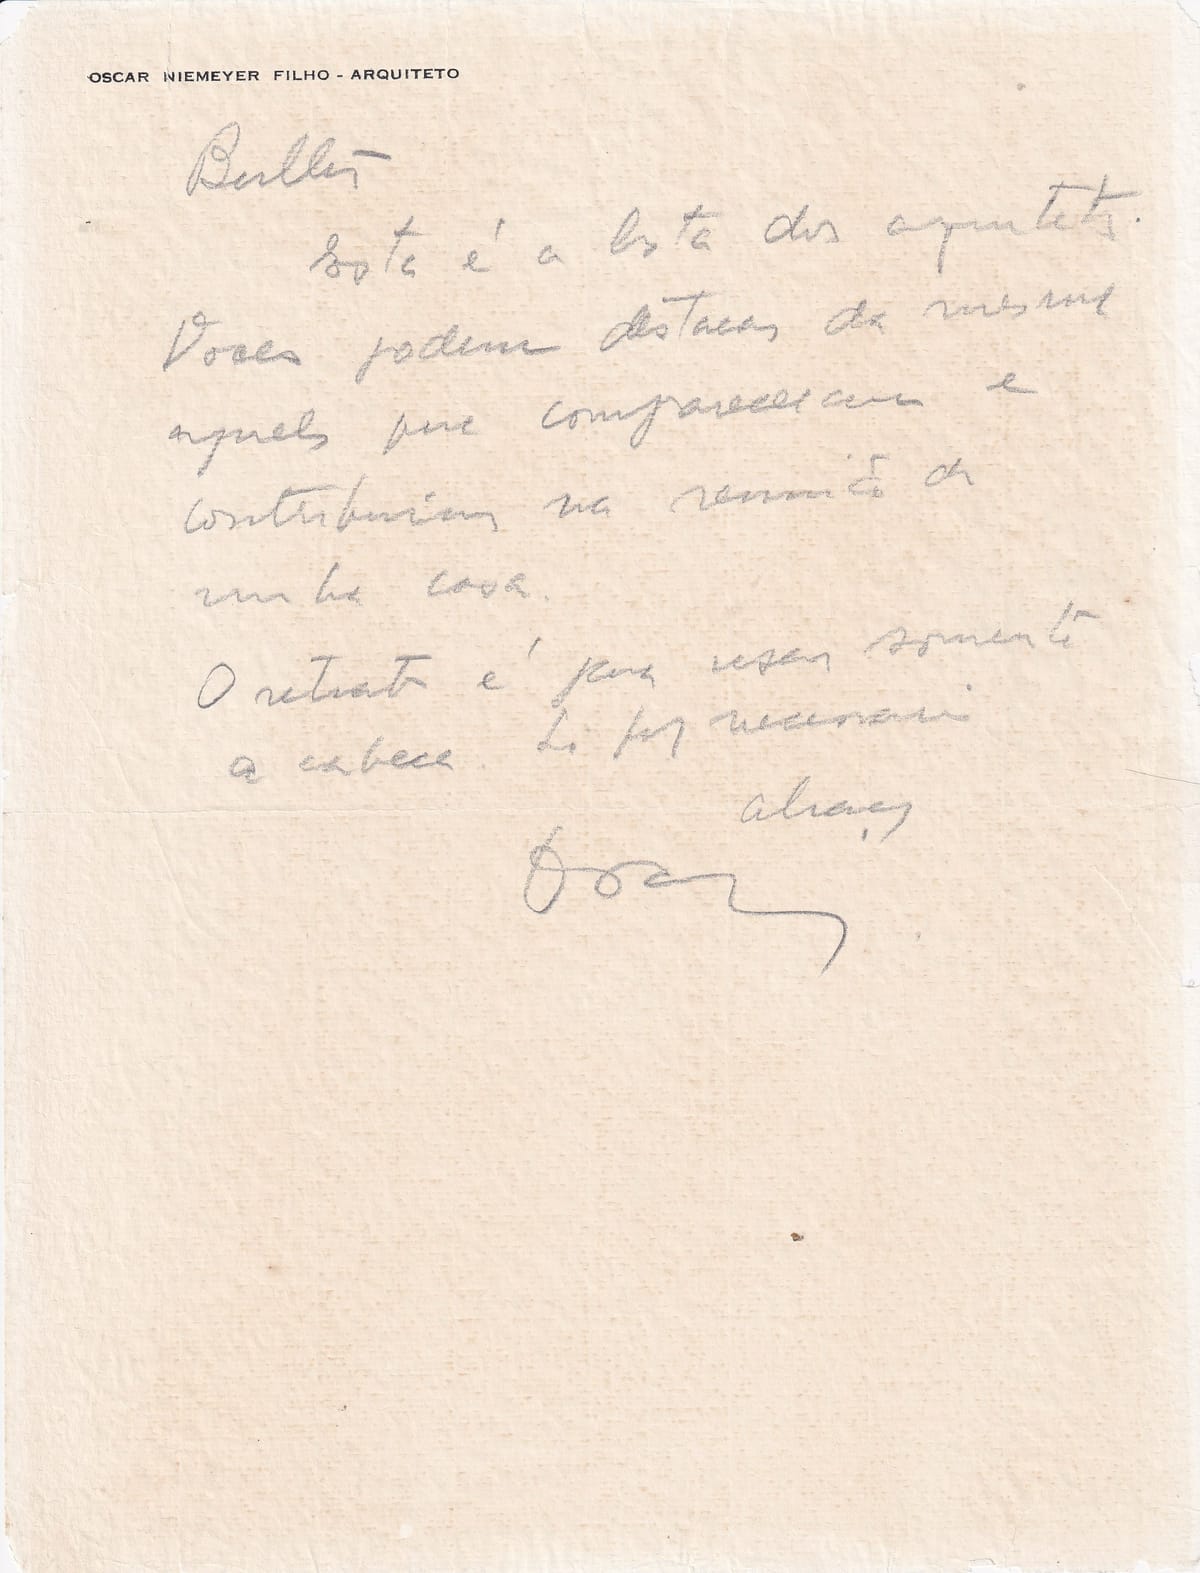 OSCAR NIEMEYER FILHO - ARQUITETO
Esta é a lista dos arquitetos.
Voces podem destacar da mesma
aqueles que compareceram e
contribuiram na reunião de
minha casa.
O retrato é para usar somente
a cabeca. Se for necessario
abraços
Oscar